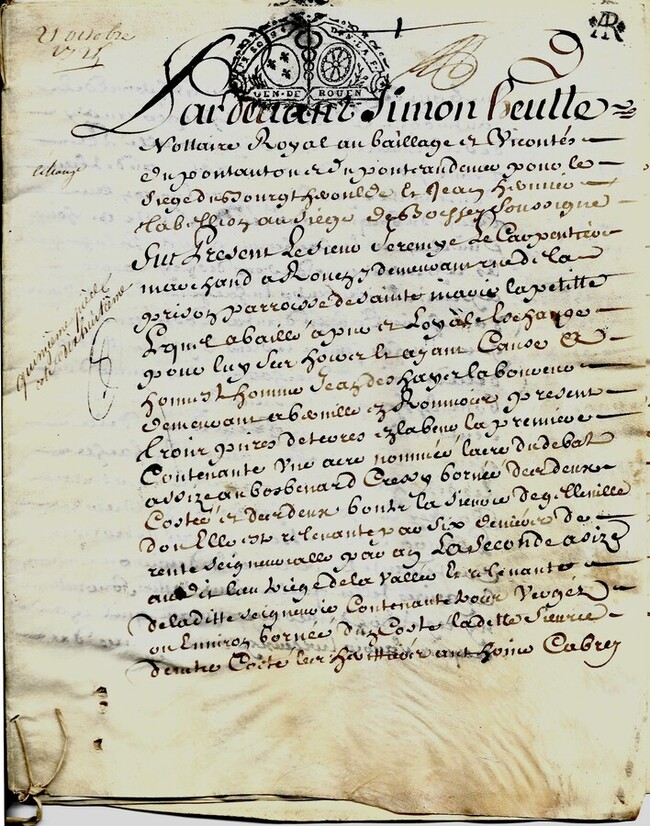 21 octobre
GEN·DE ROUEN
Pardevant Simon heulte
Nottaire Royal au bailliage et Viconté
du pontautou et du ponteaudemer pour le
Siege du Bourgtheroulde et Jean
tabellion au Siege de Boissey soussigné
fut Present Le Sieur Jeremye Le Carpentier
marchand a Rouen y demeurant rue de la
prison parroisse de Sainte marie la petitte
Lequel a baillé a pur et Loyal Eschange
pour luy ses hoirs et ayant Cause a
honneste homme Jean des hayes laboureur
demeurant a en Roumois present
trois pieces de terres en labeur la premiere
Contenante Une acre nommée lacre du debat
assize au bosbenard Cressy bornée des deux
Costés et des deux bouts la Sieurie
don Elle est relevante par Six deniers de
rente Seigneurialle par an La Seconde assize
audit lieu triege de la Vallée et relevante
de laditte Seigneurie Contenante Vergée
ou Environ bornée d'un Costé laditte Sieurie
d'autre Costé les anthoine Cabrey
quinzieme piece